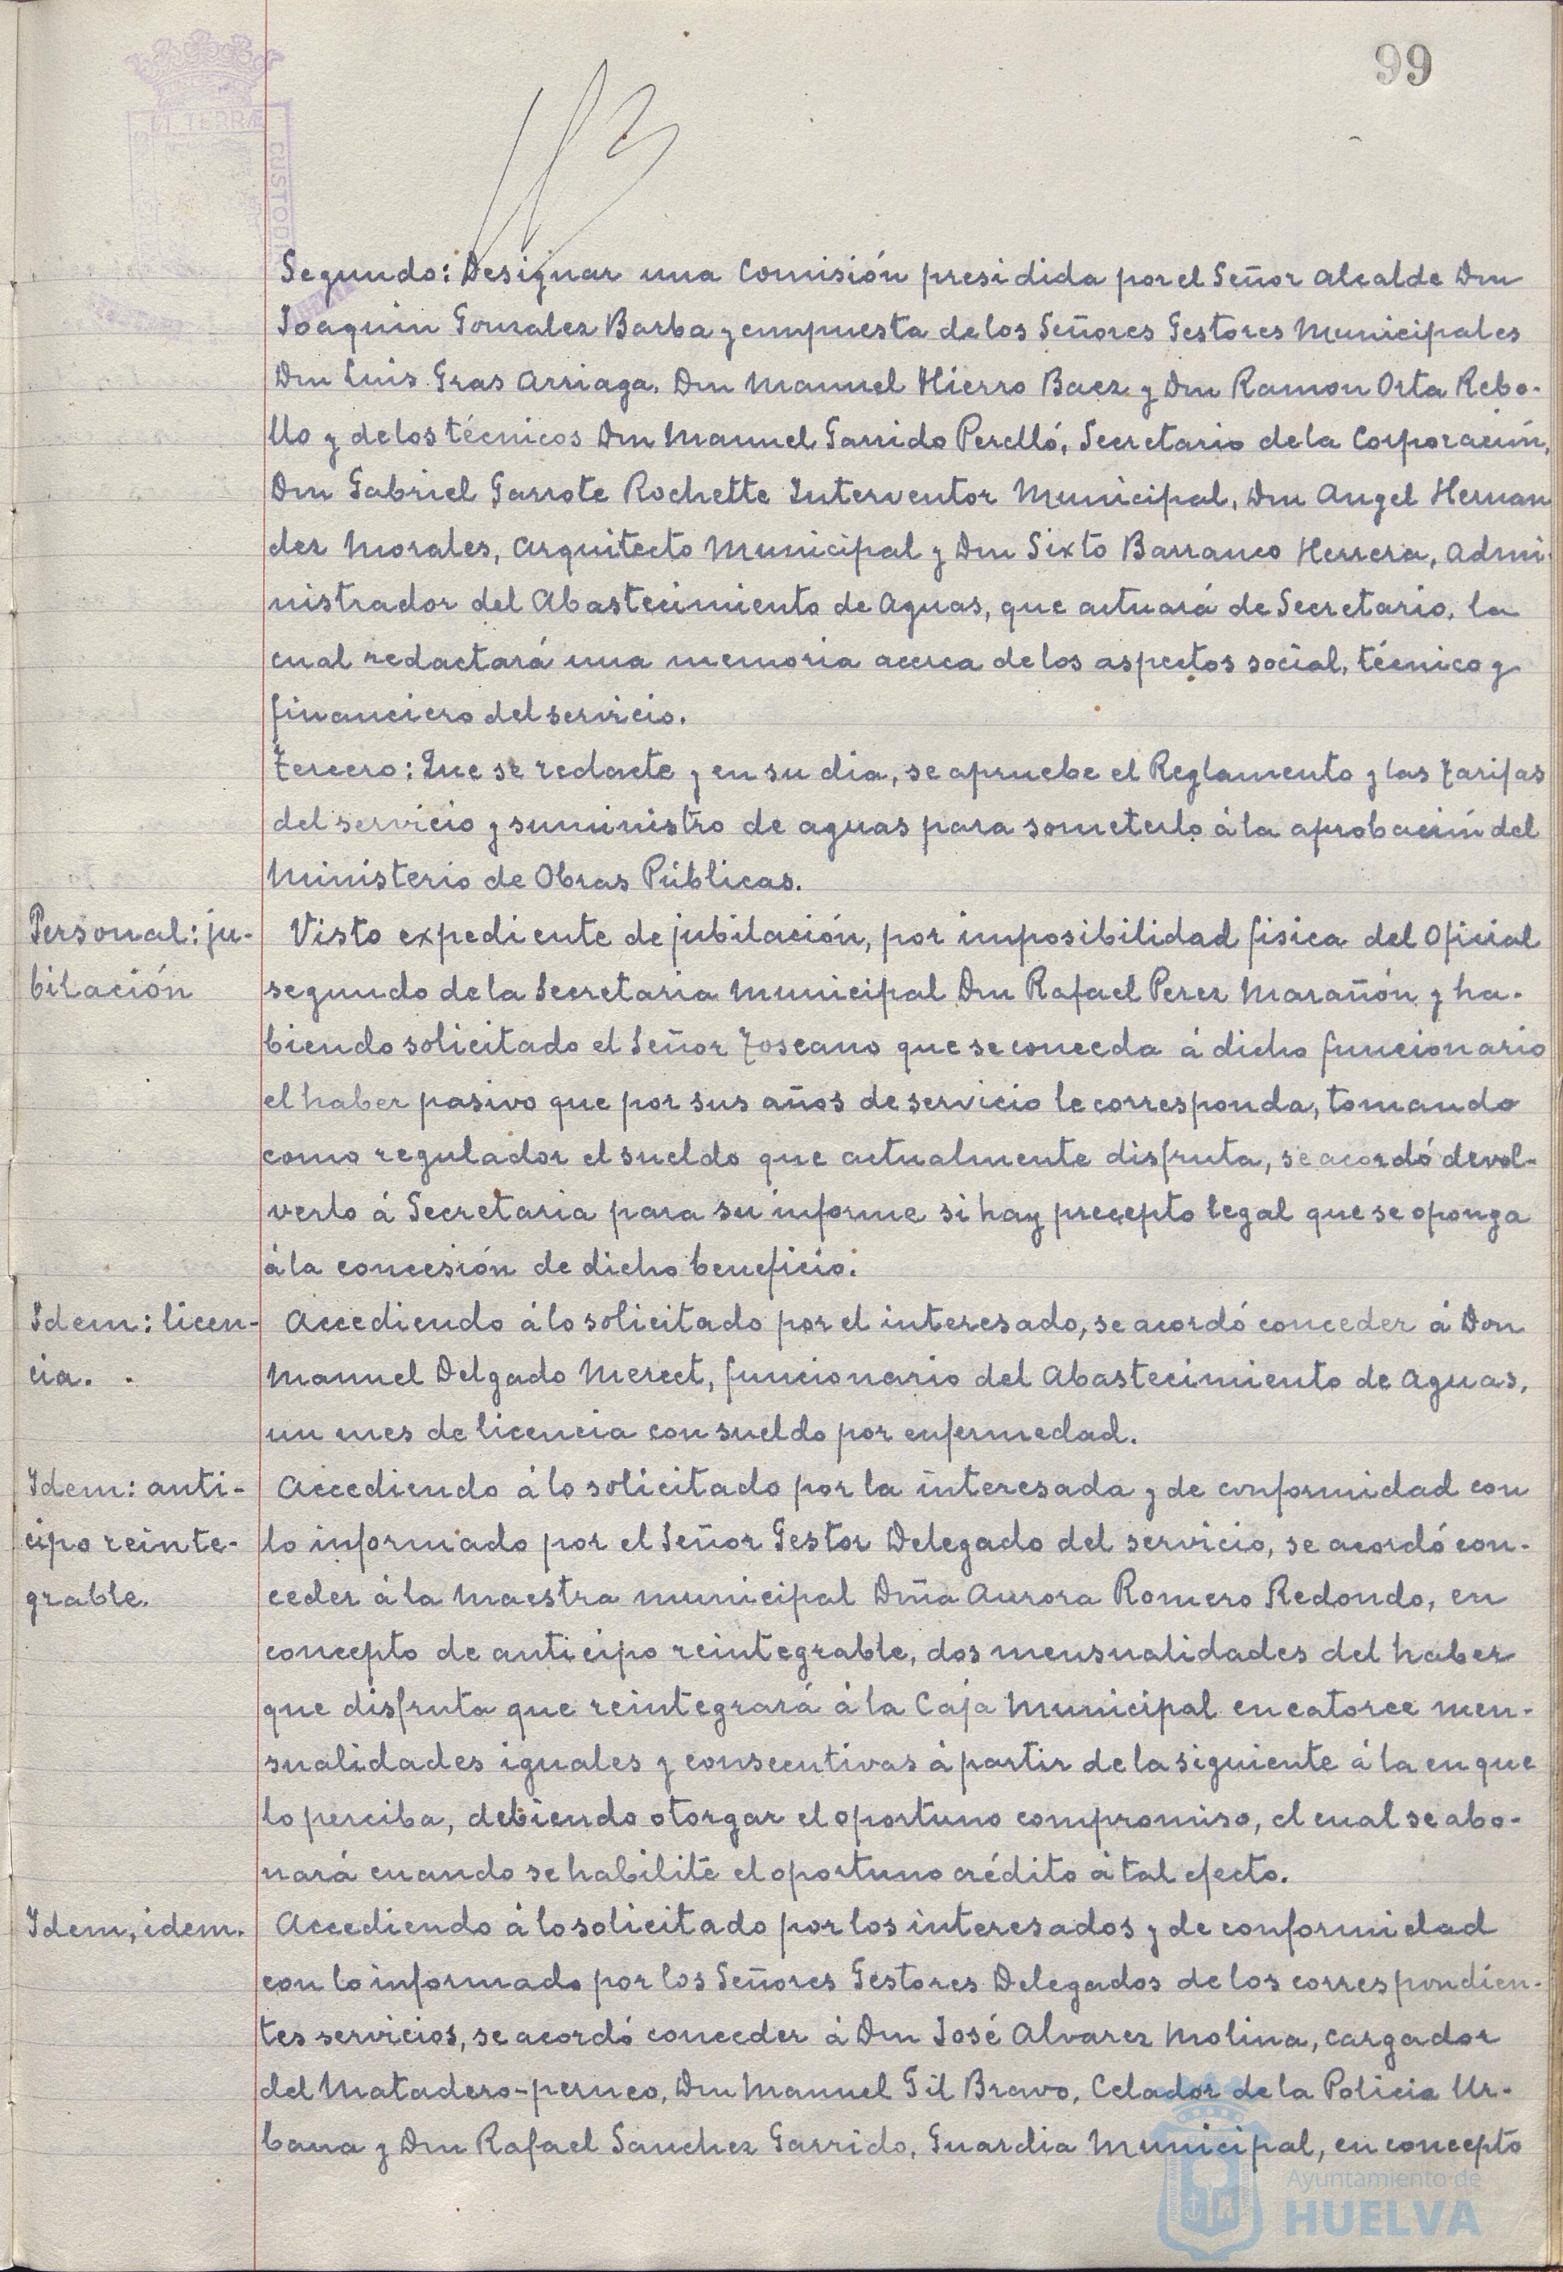 99
ET TERRÆ
CUSTODI
Segundo: Designar una Comisión presidida por el Señor Alcalde Don
Joaquin Gonzalez Barba y compuesta de los Señores Gestores Municipales
Don Luis Gras Arriaga, Don Manuel Hierro Baez y Don Ramon Orta Rebo-
llo y de los técnicos Don Manuel Garrido Perelló, Secretario de la Corporación,
Don Gabriel Garrote Rochette Interventor Municipal, Don Angel Hernan
dez Morales, Arquitecto Municipal y Don Sixto Barranco Herrera, Admi-
nistrador del Abastecimiento de Aguas, que actuará de Secretario, la
cual redactará una memoria acerca de los aspectos social, técnico y
financiero del servicio.
Tercero: Que se redacte y en su dia, se apruebe el Reglamento y las Tarifas
del servicio y suministro de aguas para someterlo á la aprobación del
Ministerio de Obras Públicas.
Personal: ju-
bilación
Visto expediente de jubilación, por imposibilidad fisica del Oficial
segundo de la Secretaria Municipal Don Rafael Perez Marañón y ha-
biendo solicitado el Señor Toscano que se conceda á dicho funcionario
el haber pasivo que por sus años de servicio le corresponda, tomando
como regulador el sueldo que actualmente disfruta, se acordó devol-
verlo á Secretaria para su informe si hay precepto legal que se oponga
á la concesión de dicho beneficio.
Idem: licen-
cia.
Accediendo á lo solicitado por el interesado, se acordó conceder á Don
Manuel Delgado Merect, funcionario del Abastecimiento de Aguas,
un mes de licencia con sueldo por enfermedad.
Idem: anti-
cipo reinte-
grable.
Accediendo á lo solicitado por la interesada y de conformidad con
lo informado por el Señor Gestor Delegado del servicio, se acordó con-
ceder á la Maestra municipal Dña Aurora Romero Redondo, en
concepto de anticipo reintegrable, dos mensualidades del haber
que disfruta que reintegrará á la Caja Municipal en catorce men-
sualidades iguales y consecutivas á partir de la siguiente á la en que
lo perciba, debiendo otorgar el oportuno compromiso, el cual se abo-
nará cuando se habilite el oportuno crédito á tal efecto.
Idem, idem.
Accediendo á lo solicitado por los interesados y de conformidad
con lo informado por los Señores Gestores Delegados de los correspondien-
tes servicios, se acordó conceder á Don José Alvarez Molina, cargador
del Matadero-perneo, Don Manuel Gil Bravo, Celador de la Policia Ur-
bana y Don Rafael Sanchez Garrido, Guardia Municipal, en concepto
Ayuntamiento de
HUELVA